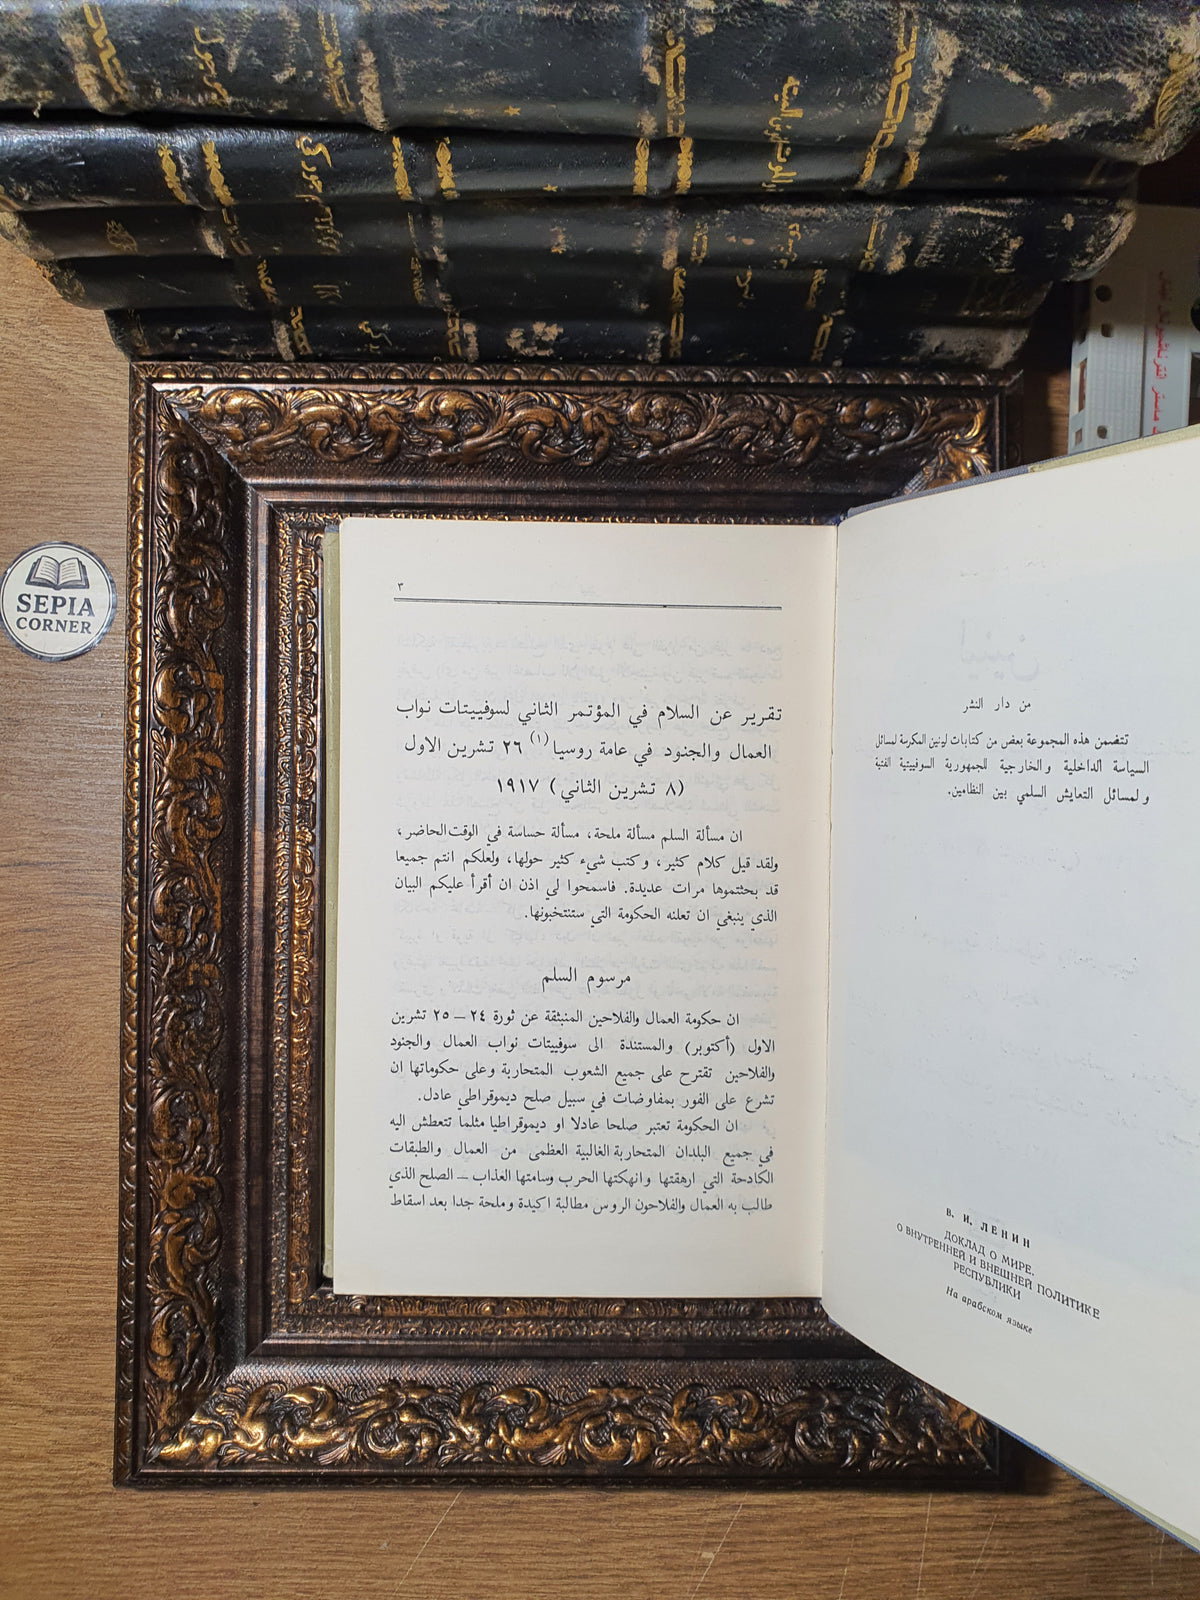 SEPIA
CORNER
من دار النشر
تتضمن هذه المجموعة بعض من كتابات لينين المكرسة لمسائل
السياسة الداخلية والخارجية للجمهورية السوفييتية الفتية
ولمسائل التعايش السلمي بين النظامين.
В. И. ЛЕНИН
ДОКЛАД О МИРЕ.
О ВНУТРЕННЕЙ И ВНЕШНЕЙ ПОЛИТИКЕ
РЕСПУБЛИКИ
На арабском языке
٣
تقرير عن السلام في المؤتمر الثاني لسوفييتات نواب
العمال والجنود في عامة روسيا (١) ٢٦ تشرين الاول
(٨ تشرين الثاني) ١٩١٧
ان مسألة السلم مسألة ملحة، مسألة حساسة في الوقت الحاضر،
ولقد قيل كلام كثير، وكتب شيء كثير حولها، ولعلكم انتم جميعا
قد بحثتموها مرات عديدة. فاسمحوا لي اذن ان أقرأ عليكم البيان
الذي ينبغي ان تعلنه الحكومة التي ستنتخبونها.
مرسوم السلم
ان حكومة العمال والفلاحين المنبثقة عن ثورة ٢٤ – ٢٥ تشرين
الاول (أكتوبر) والمستندة الى سوفييتات نواب العمال والجنود
والفلاحين تقترح على جميع الشعوب المتحاربة وعلى حكوماتها ان
تشرع على الفور بمفاوضات في سبيل صلح ديموقراطي عادل.
ان الحكومة تعتبر صلحا عادلا او ديموقراطيا مثلما تتعطش اليه
في جميع البلدان المتحاربة الغالبية العظمى من العمال والطبقات
الكادحة التي ارهقتها وانهكتها الحرب وسامتها العذاب – الصلح الذي
طالب به العمال والفلاحون الروس مطالبة اكيدة وملحة جدا بعد اسقاط